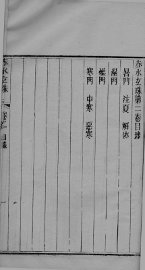 赤水玄珠第二卷目錄
暑門 注夏 解㑊
濕門
燥門
寒門 中寒 惡寒
赤水玄珠 第二卷 目錄